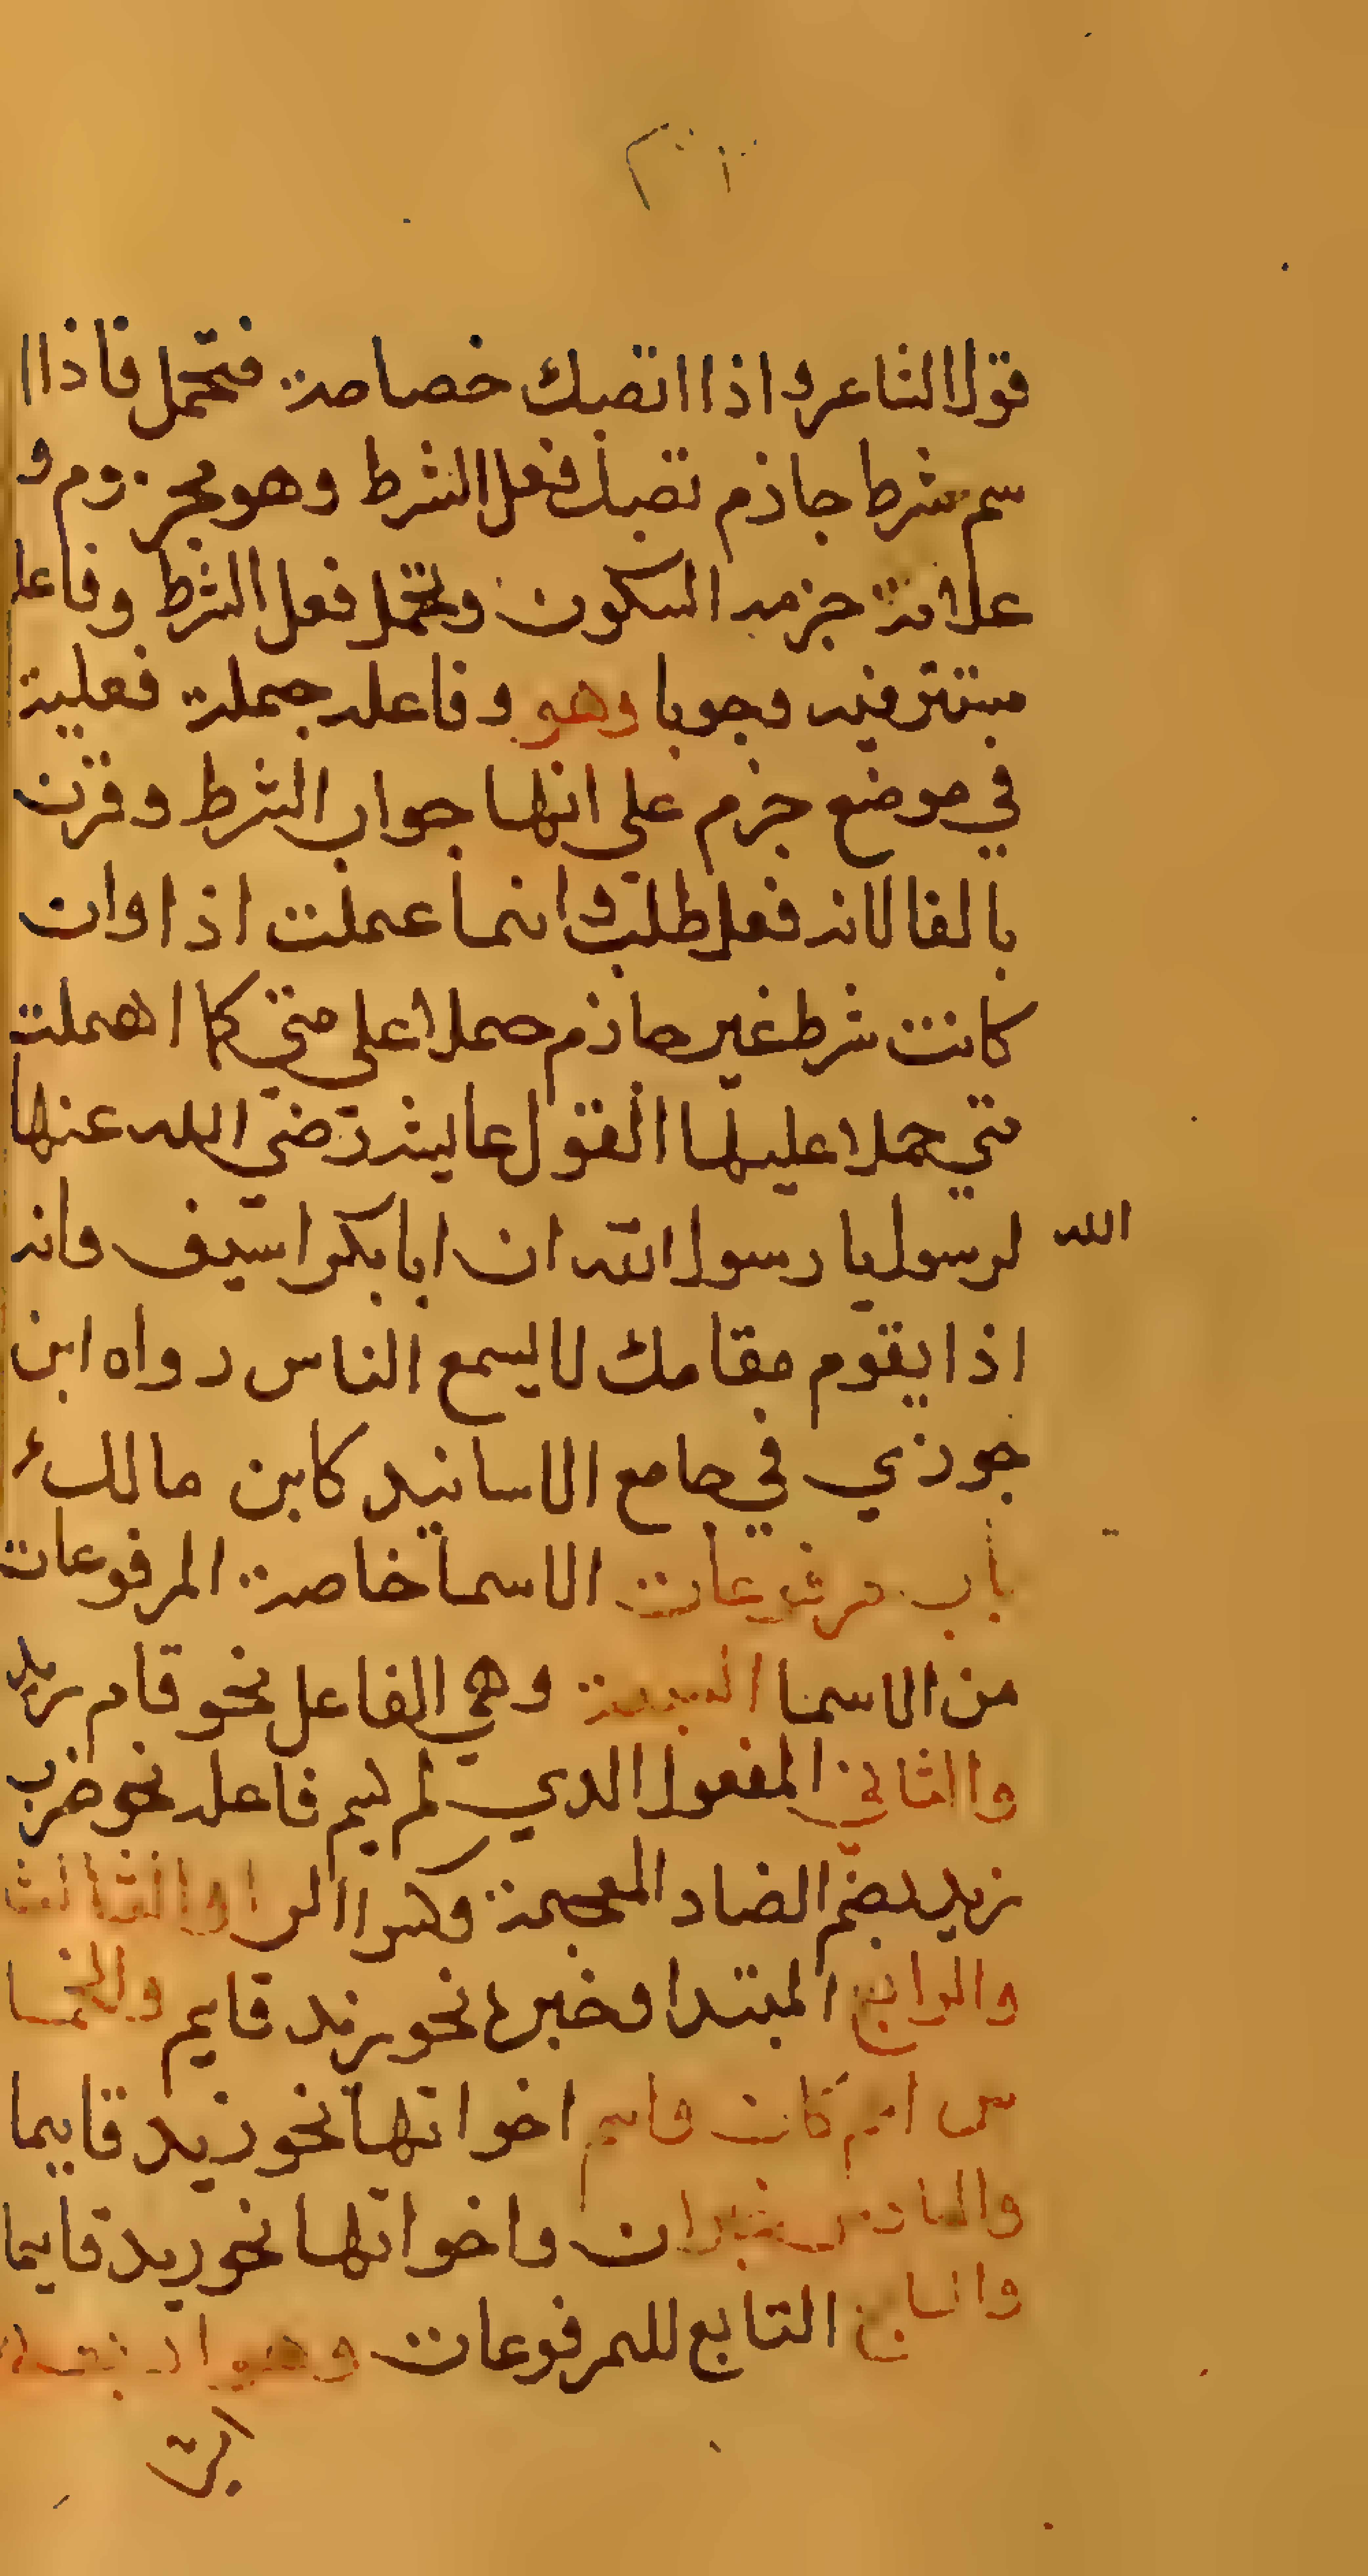 قول الشاعر واذا اتصبك خصاصة فتحمل فاذا ا
سم شرط جاذم تصبك فعل الشرط وهو مجزوم و
علامة جزمه السكون وتحمل فعل الشرط وفاعله
مستتر فيه وجوبا وهو وفاعله جملة فعلية
في موضع جزم على انها جواب الشرط وقرن
بالفا لانه فعل طلب وانما عملت اذا وان
كانت شرط غير جاذم حملا على متي كما اهملت
متي حملا عليها القول عايشه رضي الله عنها
لرسول يا رسول الله ان ابا بكر اسيف وانه
الله
اذا يقوم مقامك لا يسمع الناس رواه ابن
جوزي في جامع الاسانيد كابن مالك
باب مرفوعات الاسما خاصة المرفوعات
من الاسما السبعة وهي الفاعل نحو قام زيد
والثاني المفعول الذي لم يسم فاعله نحو ضرب
زيد بضم الضاد المعجمة وكسر الرا والثالث
والرابع المبتدا وخبره نحو زيد قايم والخا
مس اسم كان واسم اخواتها نحو زيد قايما
والسادس خبر ان واخواتها نحو زيد قايما
والسابع التابع للمرفوعات وهو اربعة